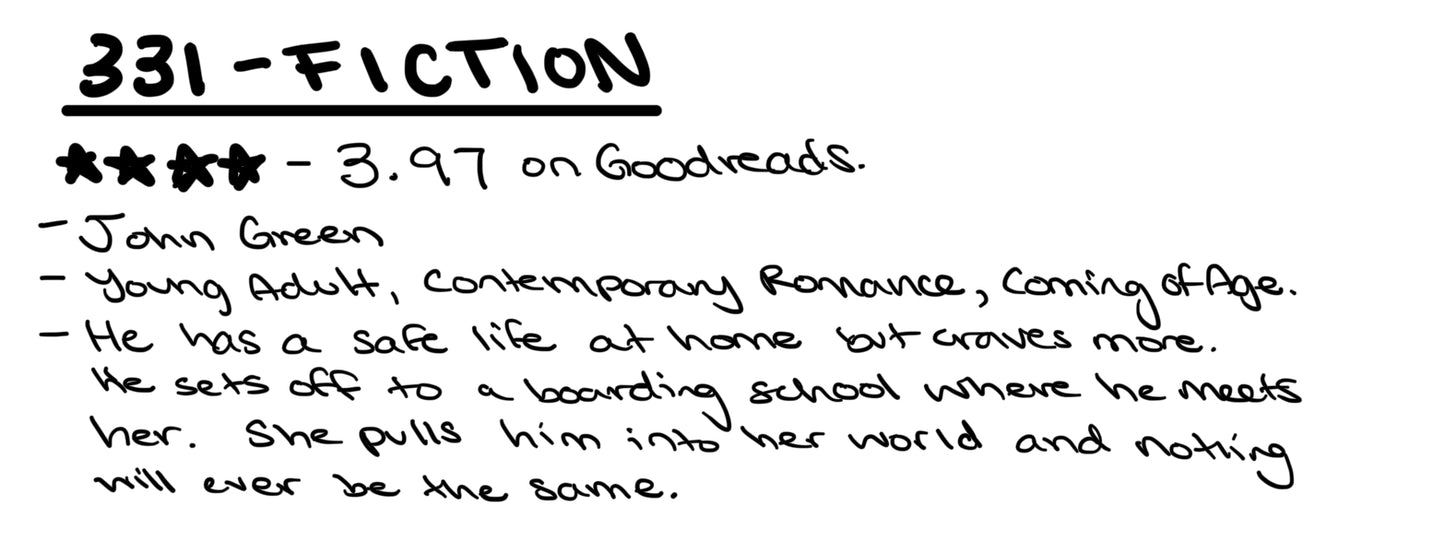 331 - FICTION
★★★★ - 3.97 on Goodreads.
- John Green
- Young Adult, Contemporary Romance, Coming of Age.
- He has a safe life at home but craves more.
He sets off to a boarding school where he meets
her. She pulls him into her world and nothing
will ever be the same.